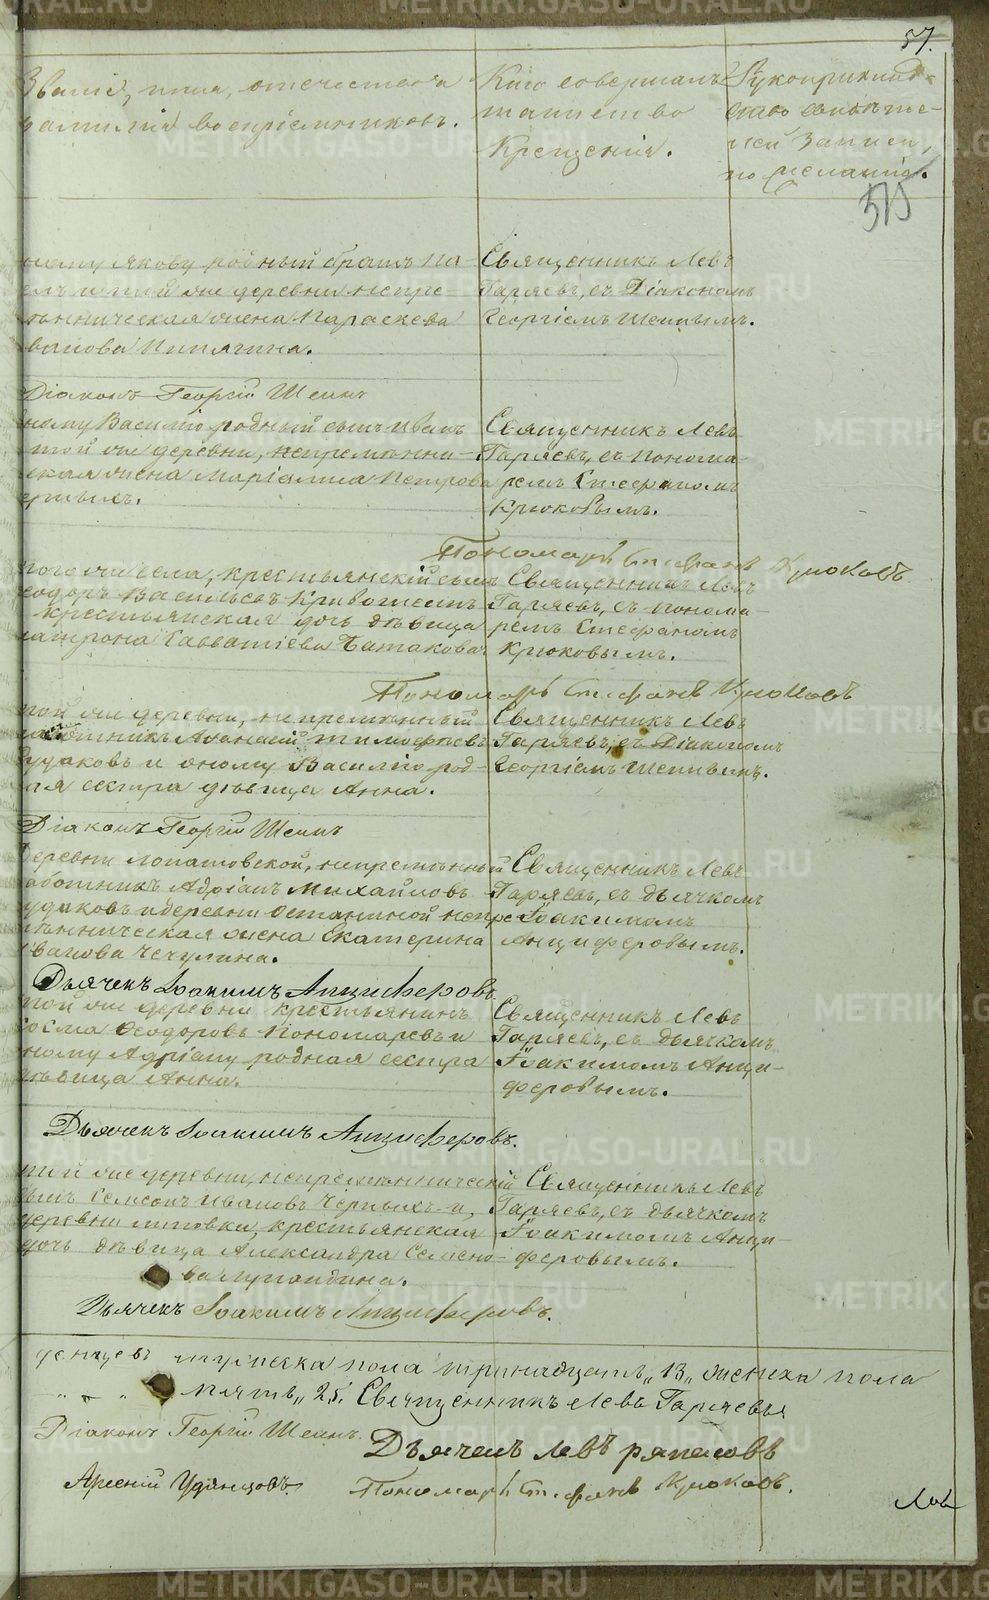 57.
Званіе, имя, отечество и
фамилія воспріемниковъ.
Кто совершалъ
таинство
Крещенія.
Рукоприклад-
ство свидѣте-
лей записи
по желанію.
515
ному Якову родный братъ Па-
елъ и той же деревни непре-
мѣнническая жена Параскева
ванова Пинягина.
Священникъ Левъ
Гаряевъ, съ Діакономъ
Георгіемъ Шеинымъ.
Діаконъ Георгій Шеинъ
ному Василію родный сынъ Иванъ
той же деревни, непремѣнни-
ская жена Маріамна Петрова
ерныхъ.
Священникъ Левъ
Гаряевъ, съ понома-
ремъ Стефаномъ
Крюковымъ.
Пономарь Стефанъ Крюковъ
того же села, крестьянскій сынъ
еодоръ Васильевъ
крестьянская дочь дѣвица
атрона Савватіева
Священникъ Левъ
Гаряевъ, съ понома-
ремъ Стефаномъ
Крюковымъ.
Пономарь Стефанъ Крюковъ
той же деревни, непремѣнный
работникъ Аѳанасій Тимофѣевъ
удаковъ и оному Василію род-
ая сестра дѣвица Анна.
Священникъ Левъ
Гаряевъ, съ Діакономъ
Георгіемъ Шеинымъ.
Діаконъ Георгій Шеинъ
деревни Лопатовской, непремѣнный
аботникъ Адріанъ Михайловъ
удаковъ и деревни Останиной непре-
мѣнническая жена Екатерина
ванова Чечулина.
Священникъ Левъ
Гаряевъ, съ дьячкомъ
Іоакимомъ
Анциферовымъ.
Дьячекъ Іоакимъ Анциферовъ
той же деревни крестьянинъ
Косма Ѳеодоровъ Пономаревъ и
ному Адріану родная сестра
дѣвица Анна.
Священникъ Левъ
Гаряевъ, съ дьячкомъ
Іоакимомъ Анци-
феровымъ.
Дьячекъ Іоакимъ Анциферовъ.
той же деревни, непремѣнническій
сынъ Семеонъ Ивановъ Черныхъ и,
деревни Липовки, крестьянская
дочь дѣвица Александра Семено-
ва
Священникъ Левъ
Гаряевъ, съ дьячкомъ
Іоакимомъ Анци-
феровымъ.
Дьячекъ Іоакимъ Анциферовъ.
денцевъ мужеска пола тринадцать „13„ женска пола
пять„ 25. Священникъ Левъ Гаряевъ
Діаконъ Георгій Шеинъ. Дьячекъ Левъ Ряпасовъ
Арсеній Удинцовъ. Пономарь Стефанъ Крюковъ.
METRIKI.GASO-URAL.RU